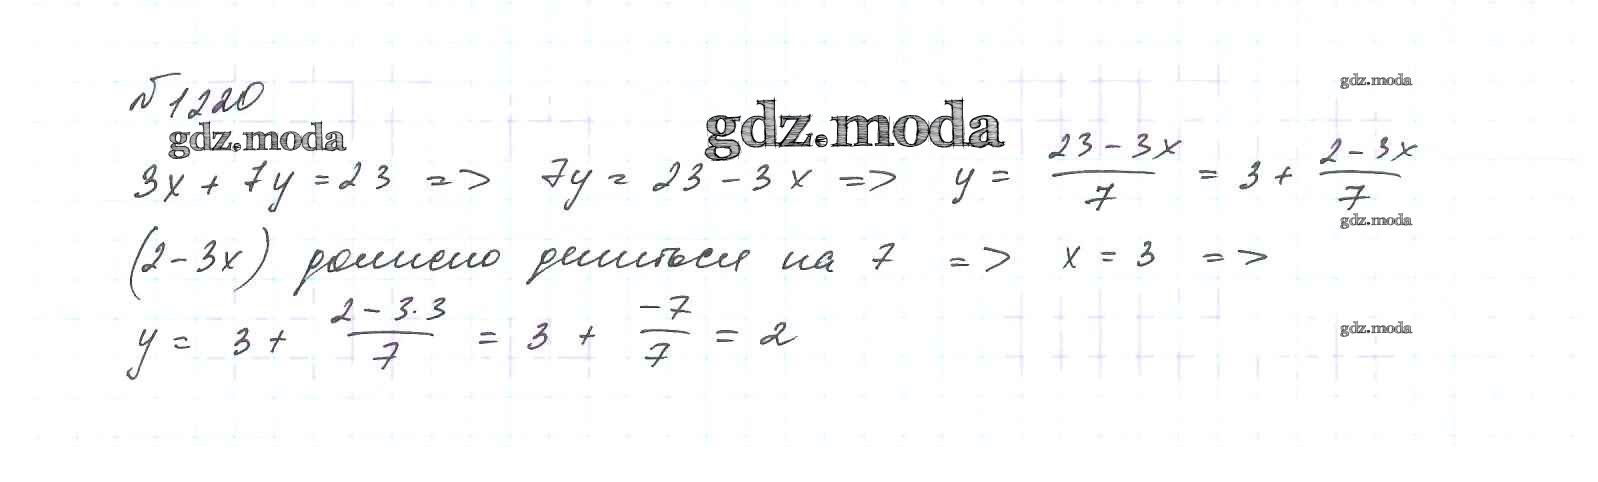 №1220
gdz.moda gdz.moda gdz.moda
3x + 7y = 23 => 7y = 23 - 3x => y = (23 - 3x)/7 = 3 + (2 - 3x)/7
gdz.moda
(2 - 3x) должно делиться на 7 => x = 3 =>
y = 3 + (2 - 3·3)/7 = 3 + (-7)/7 = 2
gdz.moda